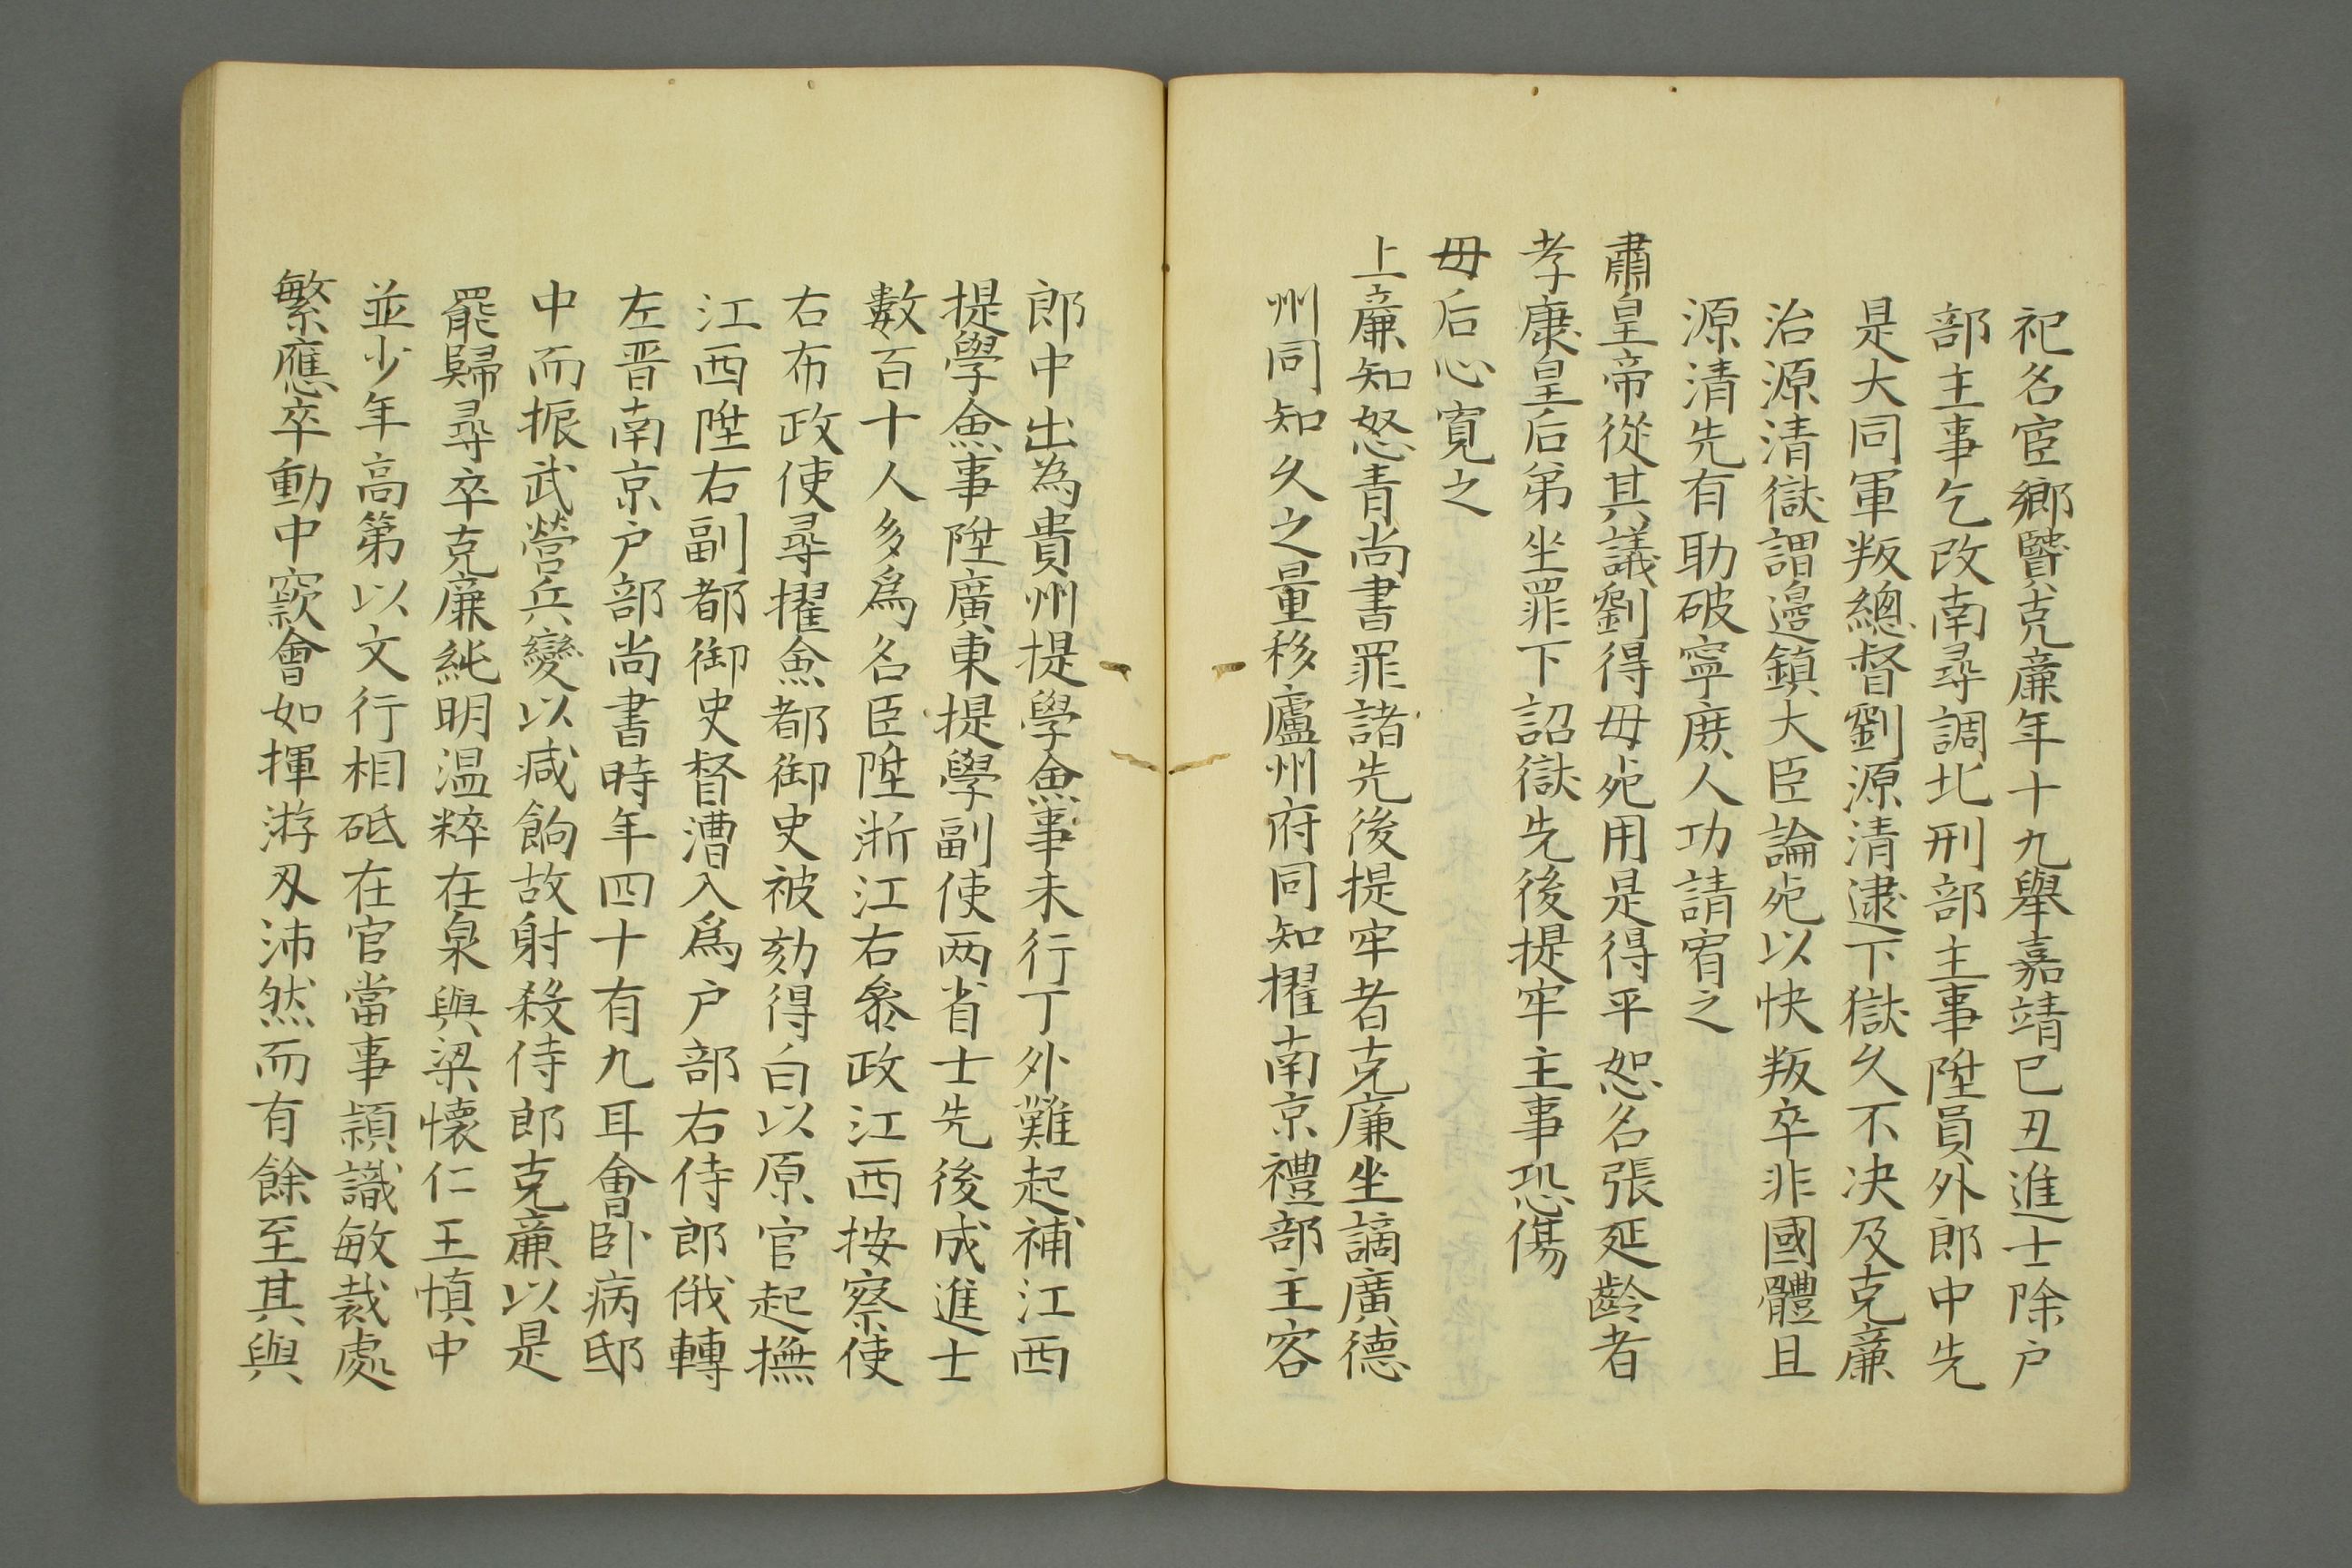 祀名宦鄉賢克廉年十九舉嘉靖巳丑進士除户
部主事乞改南尋調北刑部主事陞員外郎中先
是大同軍叛總督劉源清逮下獄久不决及克廉
治源清獄謂邊鎮大臣論死以快叛卒非國體且
源清先有助破寧庶人功請宥之
肅皇帝從其議劉得毋死用是得平恕名張延齡者
孝康皇后弟坐罪下詔獄先後提牢主事恐傷
毋后心寬之
上廉知怒青尚書罪諸先後提牢者克廉坐謫廣德
州同知久之量移廬州府同知擢南京禮部主客
郎中出為貴州提學僉事未行丁外難起補江西
提學僉事陞廣東提學副使两省士先後成進士
數百十人多爲名臣陞浙江右叅政江西按察使
右布政使尋擢僉都御史被劾得白以原官起撫
江西陞右副都御史督漕入爲户部右侍郎俄轉
左晋南京户部尚書時年四十有九耳會卧病邸
中而振武營兵變以减餉故射殺侍郎克廉以是
罷歸尋卒克廉純明温粹在泉與梁懷仁王慎中
並少年高第以文行相砥在官當事穎識敏裁處
繁應卒動中窾會如揮游刄沛然而有餘至其與